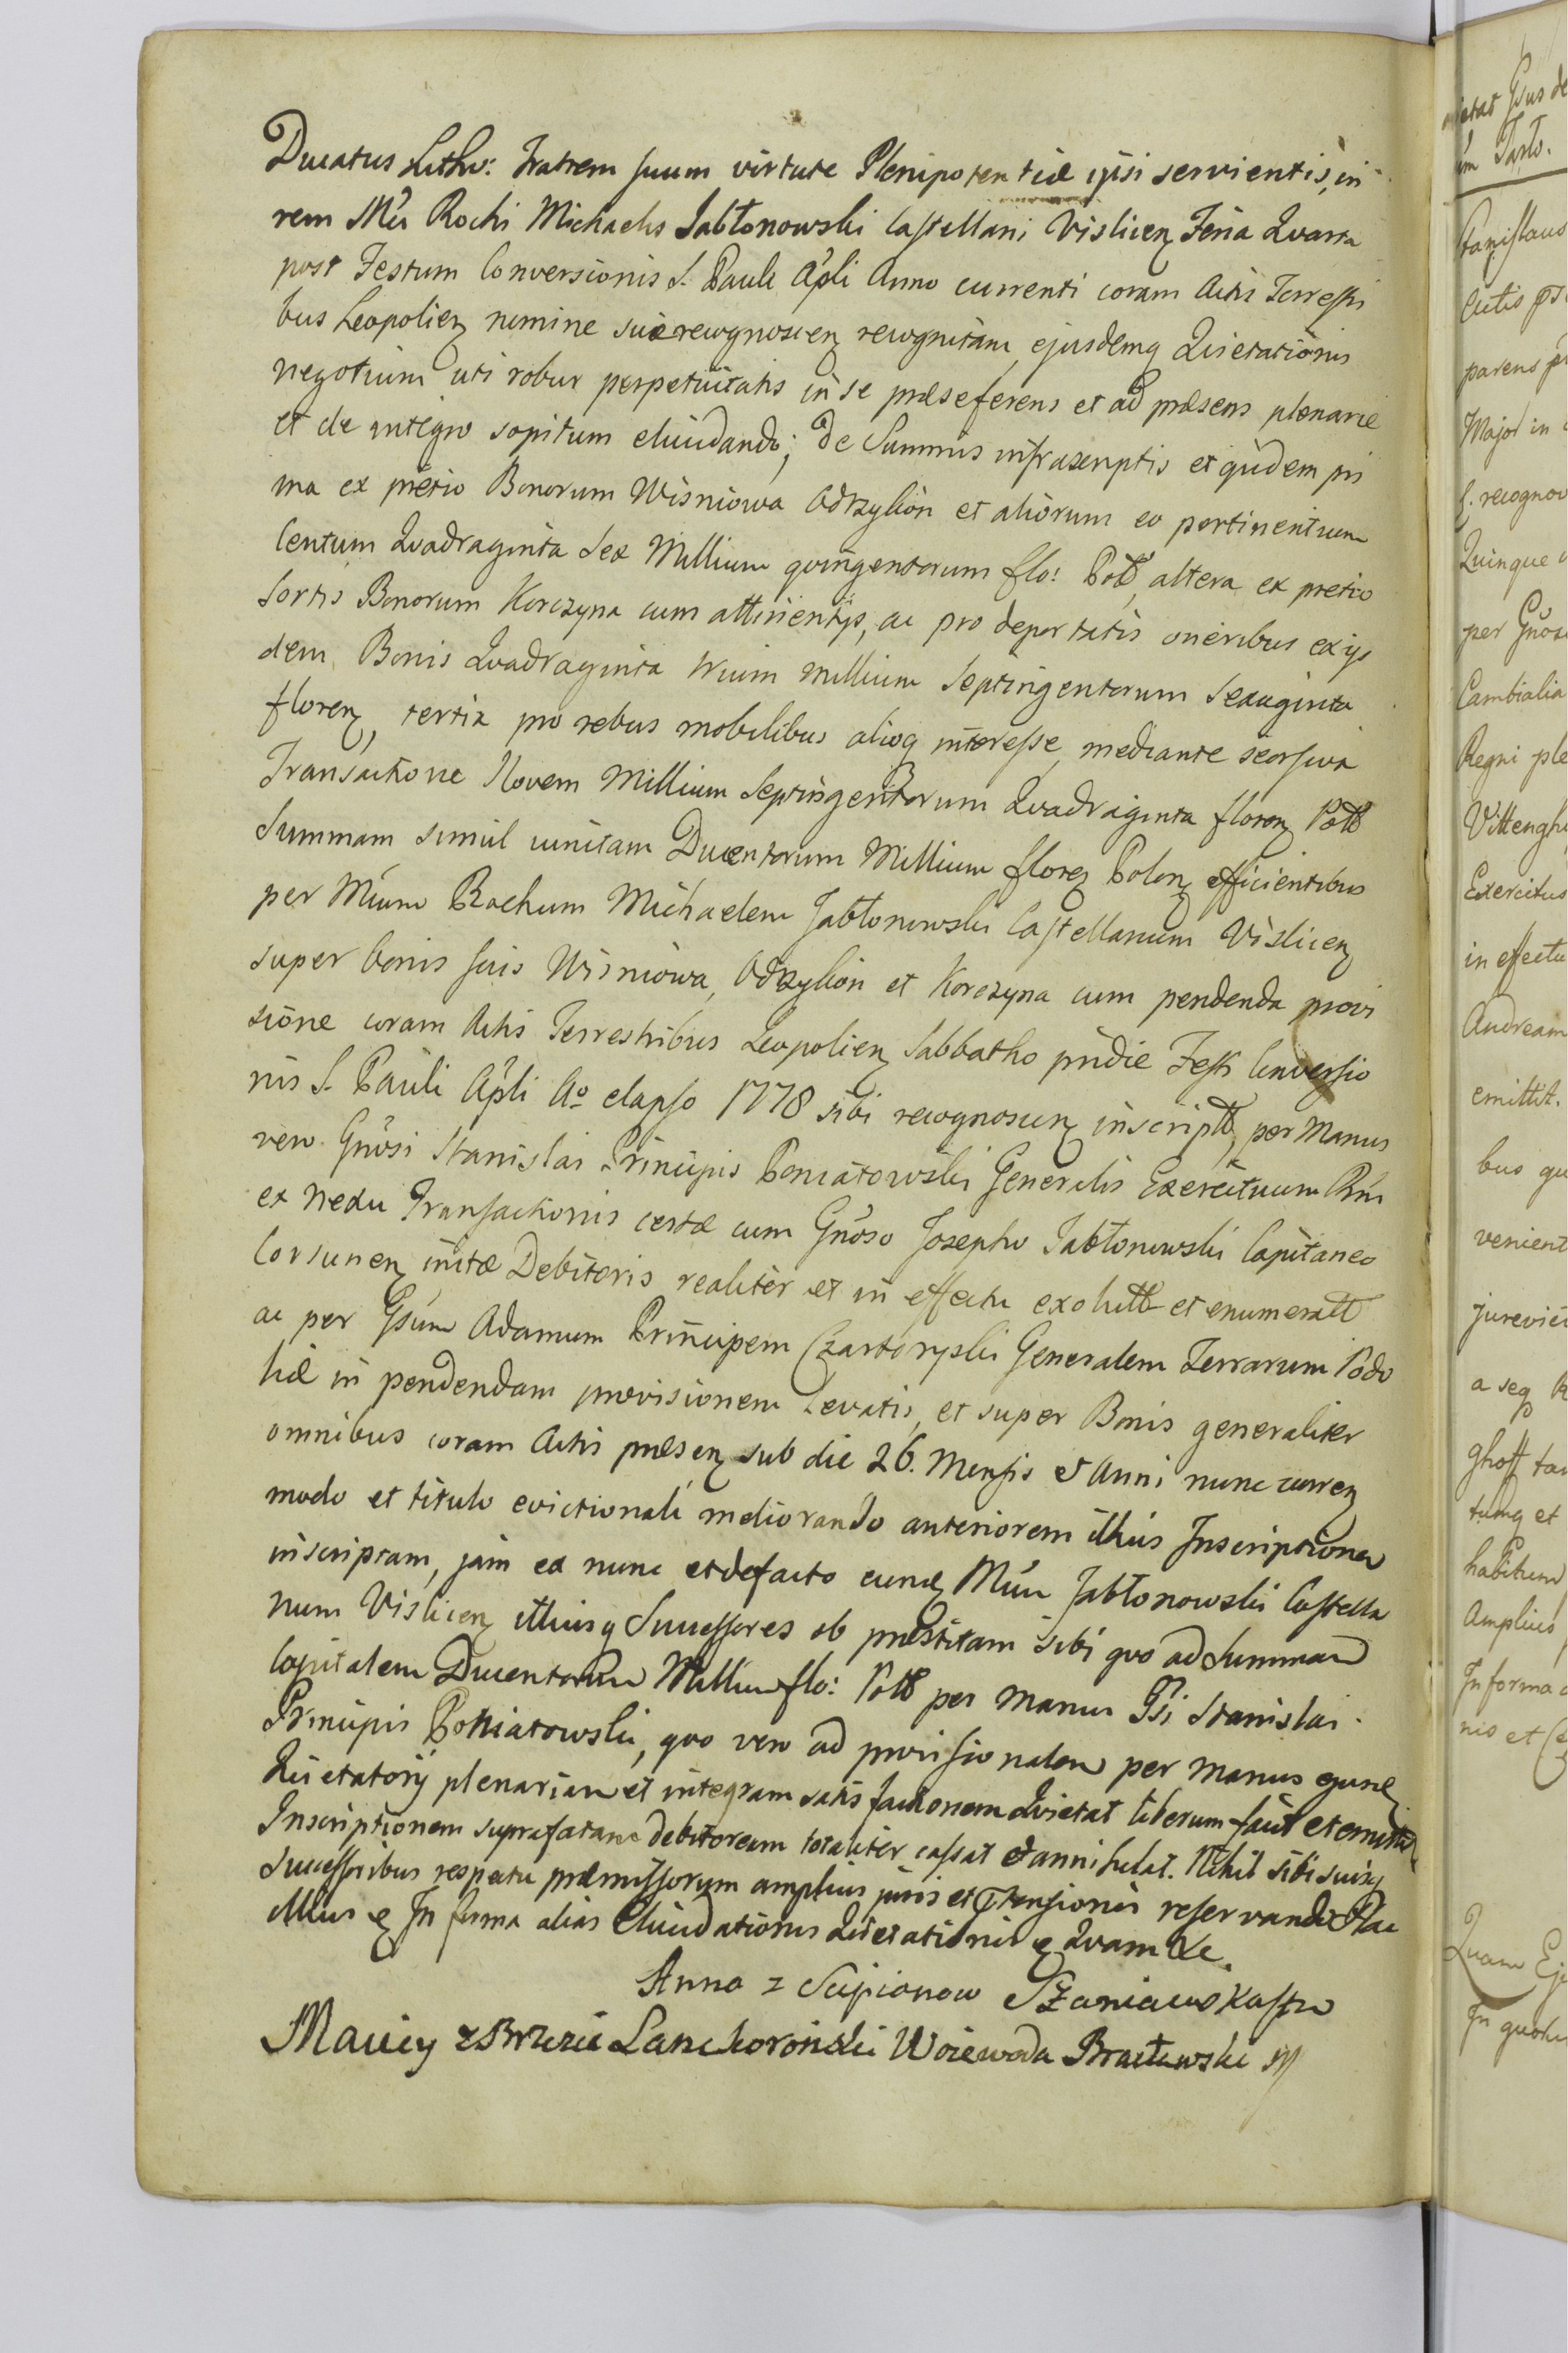 Ducatus Lithv: Fratrem suum virtute Plenipotentiæ ipsi servientis, in
rem Mci Rochi Michaelis Jabłonowski Castellani Vislicen Feria Quarta
post Festum Conversionis S. Pauli Apli Anno currenti coram Actis Terrestri
bus Leopolien nomine suæ recognoscen recognitam, ejusdemq Quietationis
negotium uti robur perpetuitatis in se præseferens et ad præsens plenarie
et de integro sopitum elucidando; de Summis infrascriptis et quidem pri
ma ex pretio Bonorum Wisniowa Odrzykon et aliorum eo pertinentium
Centum Quadraginta Sex Millium quingentorum flo: Poll, altera ex pretio
Sortis Bonorum Korczyna cum attinentijs, ac pro deportatis oneribus ex ijs
dem Bonis Quadraginta trium millium Septingentorum Sexaginta
floren, tertia pro rebus mobilibus alioq interesse, mediante seorsiva
Transactione Novem Millium Septingentorum Quadraginta floren Poll
Summam simul unitam Ducentorum Millium floren Polon efficientibus
per Mcum Rochum Michaelem Jabłonowski Castellanum Vislicen
super bonis suis Wisniowa, Odrzykon et Korczyna cum pendenda provi
sione coram Actis Terrestribus Leopolien Sabbatho pridie Festi Conversio
nis S. Pauli Apli Ao elapso 1778 sibi recognoscen inscriptt, per Manus
vero Gnosi Stanislai Principis Poniatowski Generalis Exercituum Rni
ex nexu Transactionis certæ cum Gnoso Josepho Jabłonowski Capitaneo
Corsunen initæ Debitoris realiter et in effectu exolutt et enumeratt
ac per Gsum Adamum Principem Czartoryski Generalem Terrarum Podo
liæ in pendendam provisionem levatis, et super Bonis generaliter
omnibus coram Actis præsen sub die 26. Mensis et Anni nunc curren
modo et titulo evictionali meliorando anteriorem illius Inscriptionem
inscriptam, jam ex nunc et defacto eund Mcum Jabłonowski Castella
num Vislicen illiusq Successores ob præstitam sibi quo ad Summam
Capitalem Ducentorum Millium flo: Poll per manus Gsi Stanislai
Principis Poniatowski, quo vero ad provisionalem per manus ejusd
Quietatorij plenariam et integram satisfactionem Quietat liberum facit et emittit
Inscriptionem suprafatam debitoream totaliter cassat et annihilat. Nihil sibi suisq
Successoribus respectu præmissorum amplius juris et Ptensionis reservando Hac
illius &c In forma alias Elucidationis Quietationis &c Quam &c.
Anna z Scipionow Szaniawska
Maciey z Brzezia Lanckoroński Woiewoda Bracławski